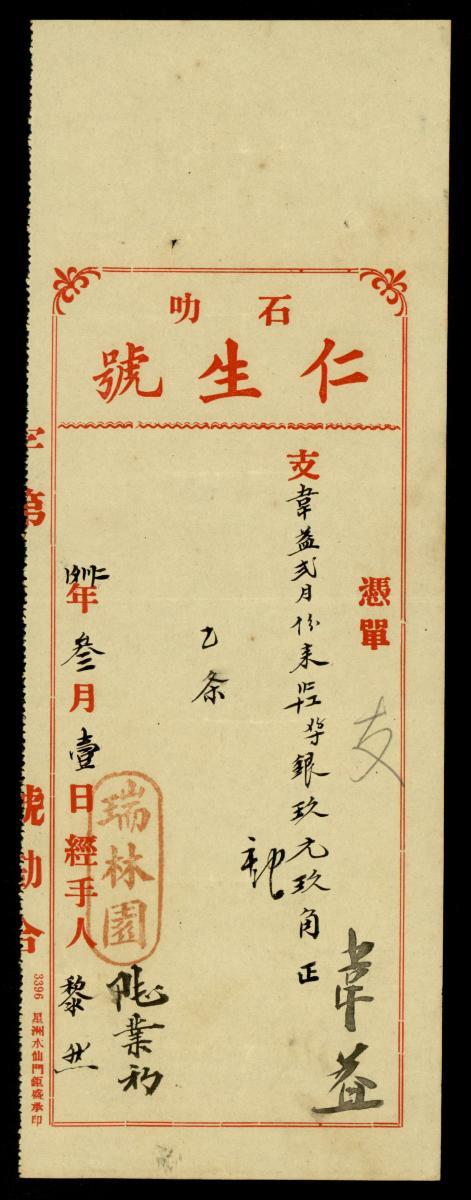 石叻
仁生號
憑單
支
支韋益弍月份来 銀玖元玖角正
韋益
乙条
年叁月壹日經手人黎
瑞林園
業
字第 號勘合
3396 星洲水仙門鉅盛承印